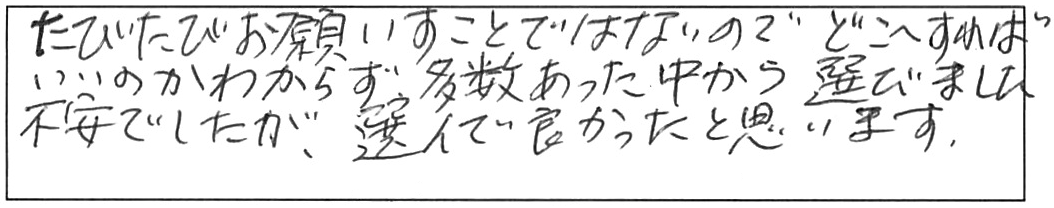 たびたびお願いすことではないので どこへすれば
いいのかわからず、多数あった中から 選びました
不安でしたが、選んで良かったと思います。